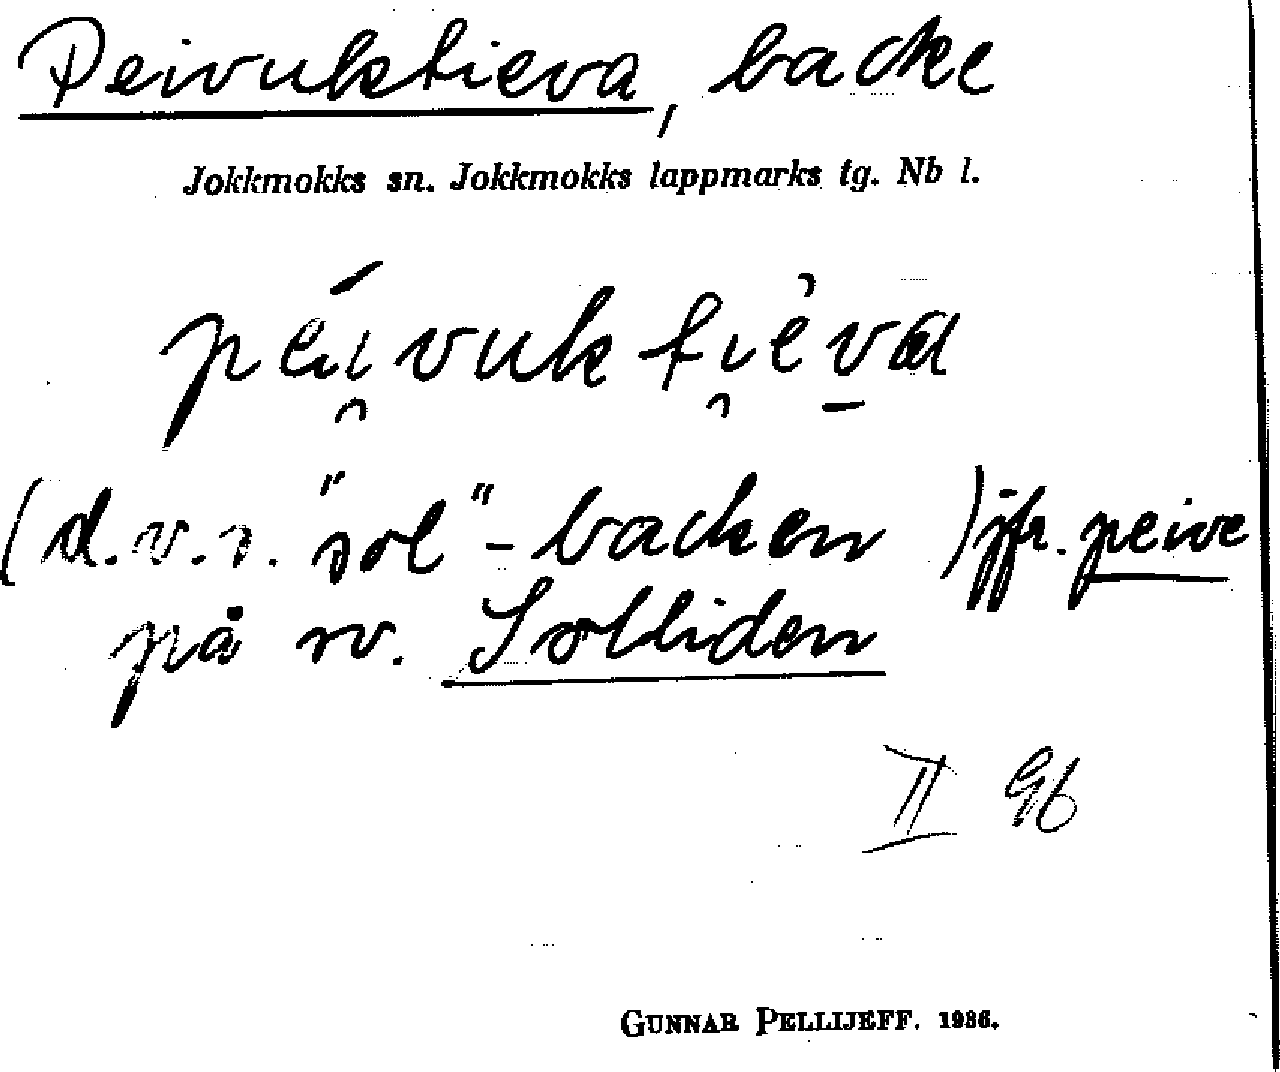 Peivuktieva, backe
Jokkmokks sn. Jokkmokks lappmarks tg. Nb l.
péi̯vukti̯èv̱a
(d.v.s. "sol"-backen) jfr. peive
på sv. Solliden
II 9b
GUNNAR PELLIJEFF. 1936.